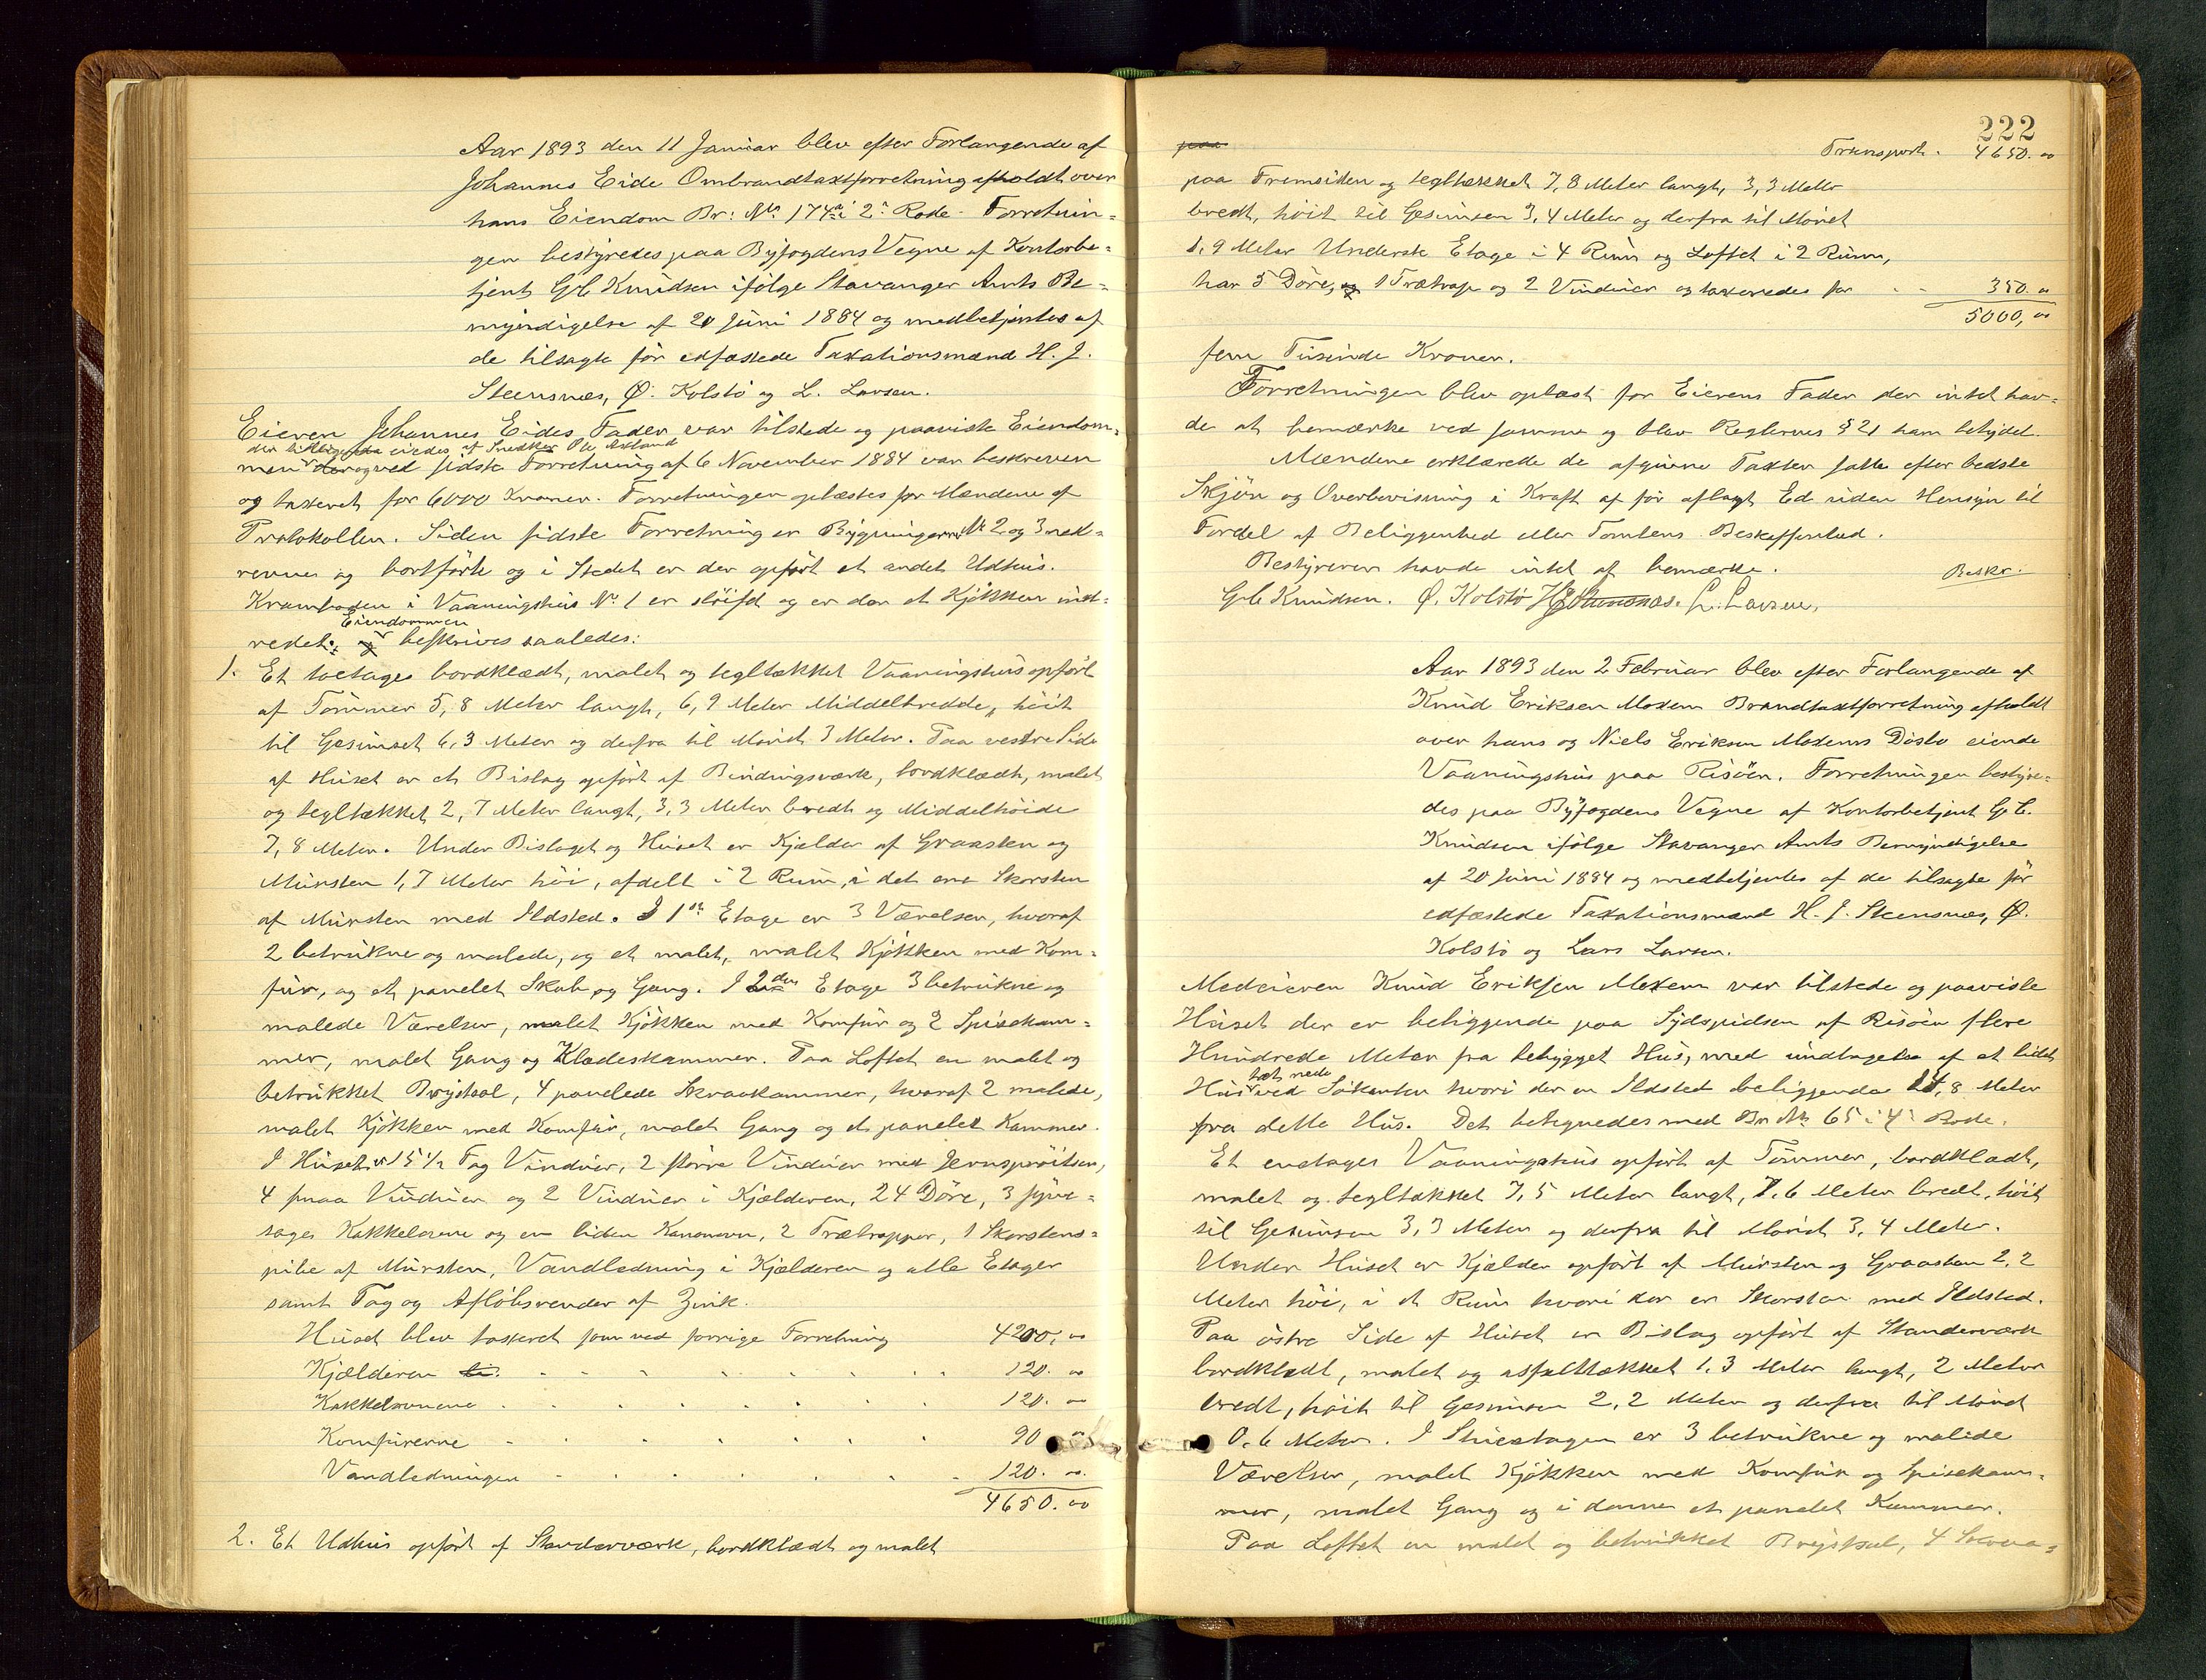 Aar 1893 den 11 Januar blev efter Forlangende af
Johannes Eide Ombrandtaxtforretning afholdt over
hans Eiendom Br: No 174a i 2n Rode. Forretnin=
gen bestyredes paa Byfogdens Vegne af Kontorbe=
tjent G. C. Knudsen ifølge Stavanger Amts Be=
myndigelse af 20 Juni 1884 og medbetjentes af
de tilsagte før edfæstede Taxationsmænd H. J.
Steensnæs, Ø. Kolstø og L. Larsen.
Eieren Johannes Eides Fader var tilstede og paaviste Eiendom=
der eiedes af Snedker Ole
men der ogved sidste Forretning af 6 November 1884 var beskreven
og taxeret for 6000 Kroner. Forretningen oplæstes for Mændene af
Protokollen. Siden sidste Forretning er Bygningerne No 2 og 3 ned=
revne og bortførte og i Stedet er der opført et andet Udhus.
Kramboden i Vaaningshus No 1 er sløifet og er der et Kjøkken ind=
Eiendommen
redet; og beskrives saaledes:
1. Et toetages bordklædt, malet og tegltækket Vaaningshus opført
af Tømmer 5,8 Meter langt, 6,9 Meter Middelbredde, høit
til Gesimset 6,3 Meter og derfra til Mønet 3 Meter. Paa vestre Side
af Huset er et Bislag opført af Bindingsværk, bordklædt, malet
og tegltækket 2,7 Meter langt, 3,3 Meter bredt og Middelhøide
7,8 Meter. Under Bislaget og Huset er Kjælder af Graasten og
Mursten 1,7 Meter høi, afdelt i 2 Rum, i det ene Skorsten
af Mursten med Ildsted. I 1ste Etage er 3 Værelser, hvoraf
2 betrukne og malede, og et malet, malet Kjøkken med Kom=
fur, og et panelet Skab og Gang. I 2den Etage 3 betrukne og
malede Værelser, malet Kjøkken med Komfur og 2 Spisekam=
mer, malet Gang og Klædeskammer. Paa Loftet en malet og
betrukket Brystsal, 4 panelede Skraakammer, hvoraf 2 malede,
malet Kjøkken med Komfur, malet Gang og et panelet Kammer.
I Huset er 15 1/2 Fag Vinduer, 2 større Vinduer med Jernsprøitser,
4 smaa Vinduer og 2 Vinduer i Kjælderen, 24 Døre, 3
tages Kakkelovne og en liden Kanonovn, 2 Trætrapper, 1 Skorstens=
pibe af Mursten, Vandledning i Kjælderen og alle Etager
samt Tag og Afløbsrender af Zink.
Huset blev taxeret som ved forrige Forretning 4200. 00
Kjælderen til. 120. 00
Kakkelovnene 120. 00
Komfurerne 90. 00
Vandledningen 120. 00.
4650. 00
2. Et Udhus opført af Standerværk, bordklædt og malet
222
paa
Transport. 4650. 00
paa Fremsiden og tegltækket 7,8 Meter langt, 3,3 Meter
bredt, høit til Gesimsen 3,4 Meter og derfra til Mønet
1,9 Meter Underste Etage i 4 Rum og Loftet i 2 Rum,
har 5 Døre, og 1 Trætrap og 2 Vinduer og taxeredes for 350. 00
5000, 00
fem Tusinde Kroner.
Forretningen blev oplæst for Eierens Fader der intet hav=
de at bemærke ved samme og blev Reglernes § 21 ham betydet.
Mændene erklærede de afgivne Taxter satte efter bedste
Skjøn og Overbevisning i Kraft af før aflagt Ed uden Hensyn til
Fordel af Beliggenhed eller Tomtens Beskaffenhed.
Bestyreren havde intet at bemærke.
Beskr.
G. C. Knudsen. Ø. Kolstø H J Steensnæs. L. Larsen.
Aar 1893 den 2 Februar blev efter Forlangende af
Knud Eriksen Moxem Brandtaxtforretning afholdt
over hans og Niels Eriksen Moxems Dødsbo eiende
Vaaningshus paa Risøen. Forretningen bestyre=
des paa Byfogdens Vegne af Kontorbetjent G. C.
Knudsen ifølge Stavanger Amts Bemyndigelse
af 20 Juni 1884 og medbetjentes af de tilsagte før
edfæstede Taxationsmænd H. J. Steensnæs, Ø.
Kolstø og Lars Larsen.
Medeieren Knud Eriksen Moxem var tilstede og paaviste
Huset der er beliggende paa Sydspidsen af Risøen flere
Hundrede Meter fra bebygget Hus, med undtagelse af et lidet
tæt nede
Hus ved Søkanten hvori der er Ildsted beliggende 14,8 Meter
fra dette Hus. Det betegnedes med Br. No 65 i 4n Rode.
Et enetages Vaaningshus opført af Tømmer, bordklædt,
malet og tegltækket 7,5 Meter langt, 7,6 Meter bredt, høit
til Gesimsen 3,3 Meter og derfra til Mønet 3,4 Meter.
Under Huset er Kjælder opført af Mursten og Graasten 2,2
Meter høi, i et Rum hvori der er Skorsten med Ildsted.
Paa østre Side af Huset er Bislag opført af Standerværk
bordklædt, malet og asfalttækket 1,3 Meter langt, 2 Meter
bredt, høit til Gesimsen 2,2 Meter og derfra til Mønet
0,6 Meter. I Stueetagen er 3 betrukne og malede
Værelser, malet Kjøkken med Komfur og Spisekam=
mer, malet Gang og i denne et panelet Kammer.
Paa Loftet en malet og betrukket Brystsal, 4 Skraa=